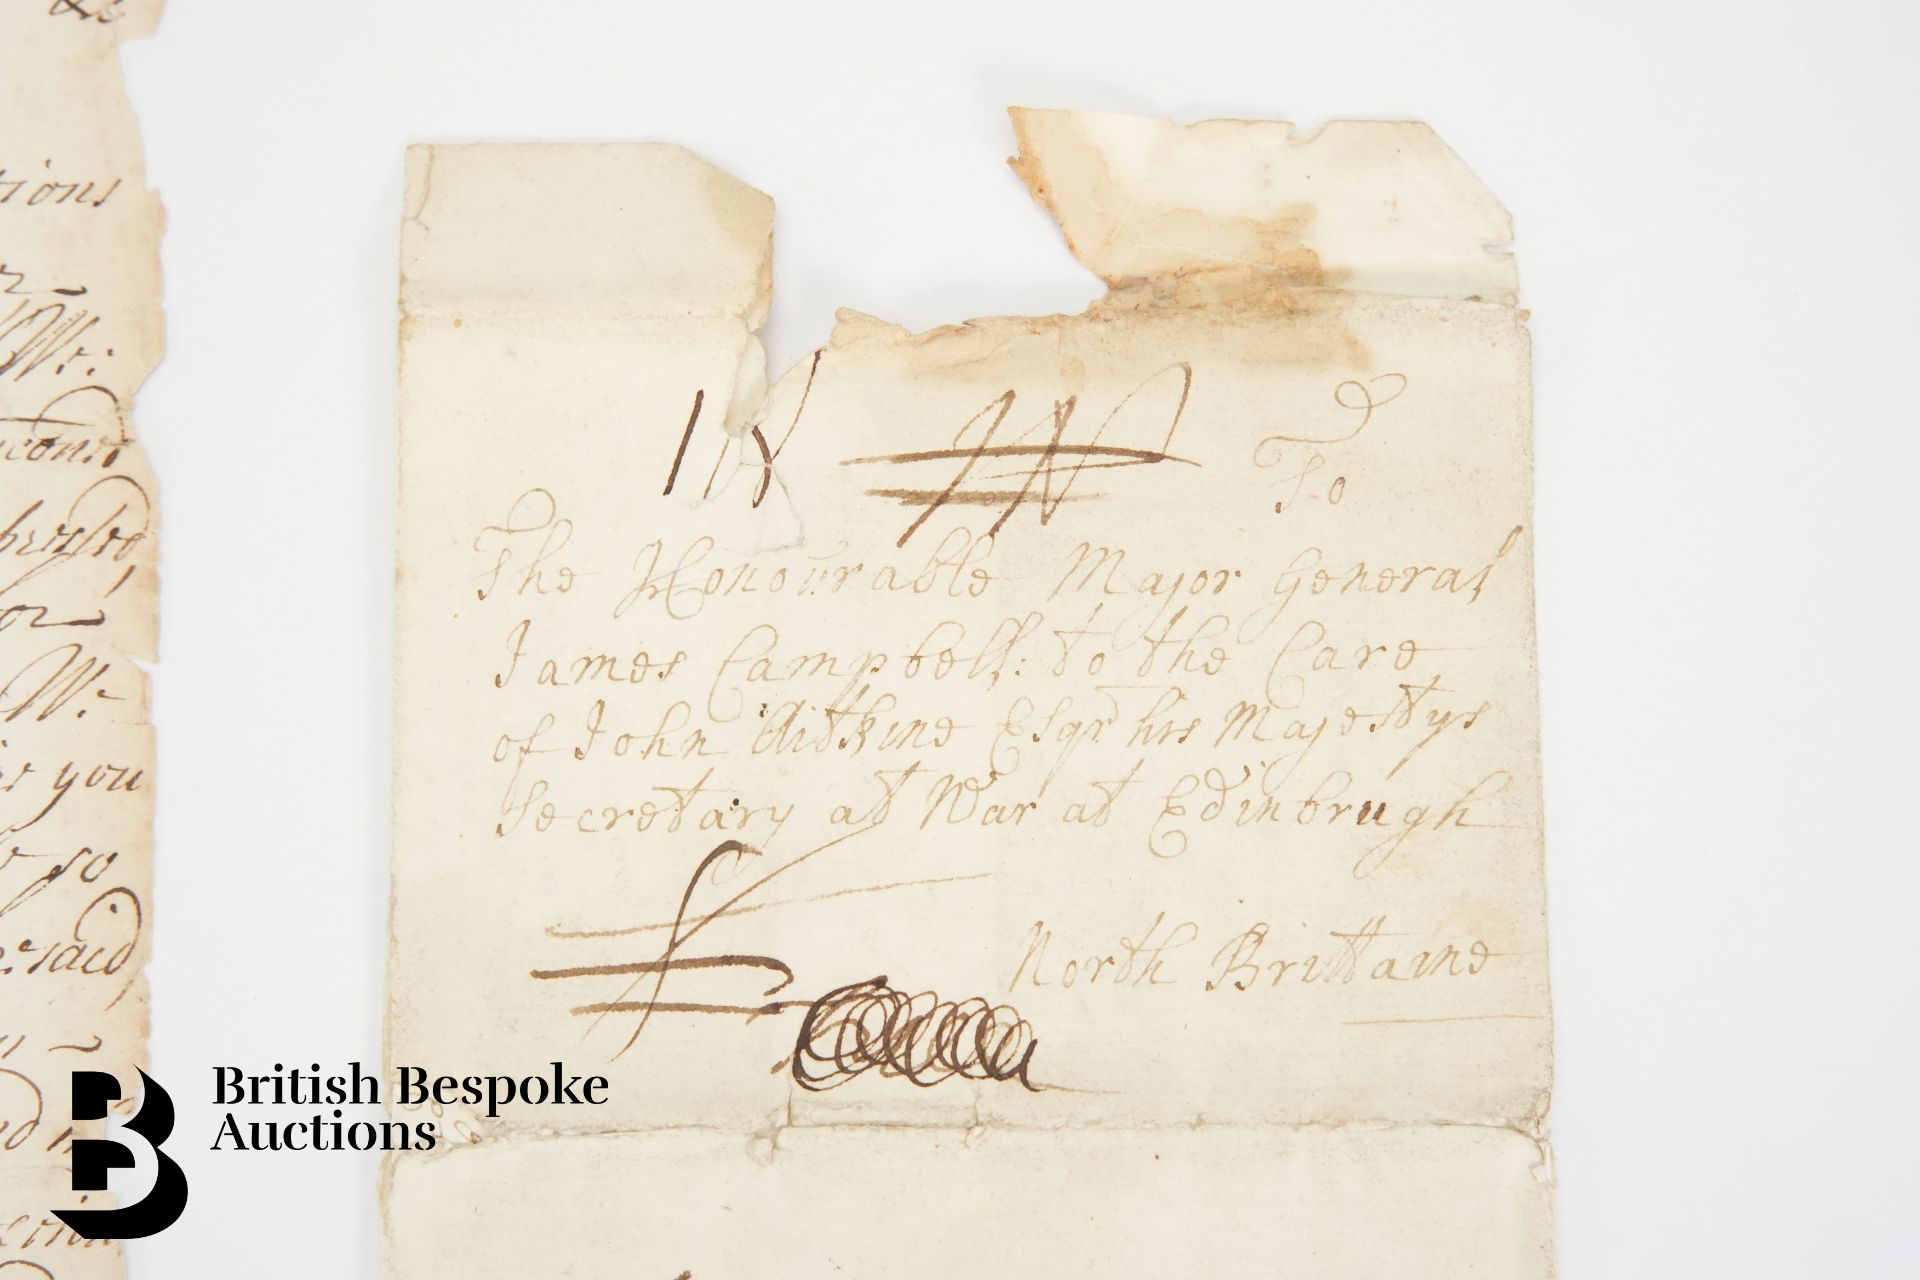 tions
We:
you
so
said
To
The Honourable Major General
James Campbell: to the Care
of John Aitkine Esqr his Majestys
Secretary at War at Edinbrugh
North Brittaine
British Bespoke
Auctions